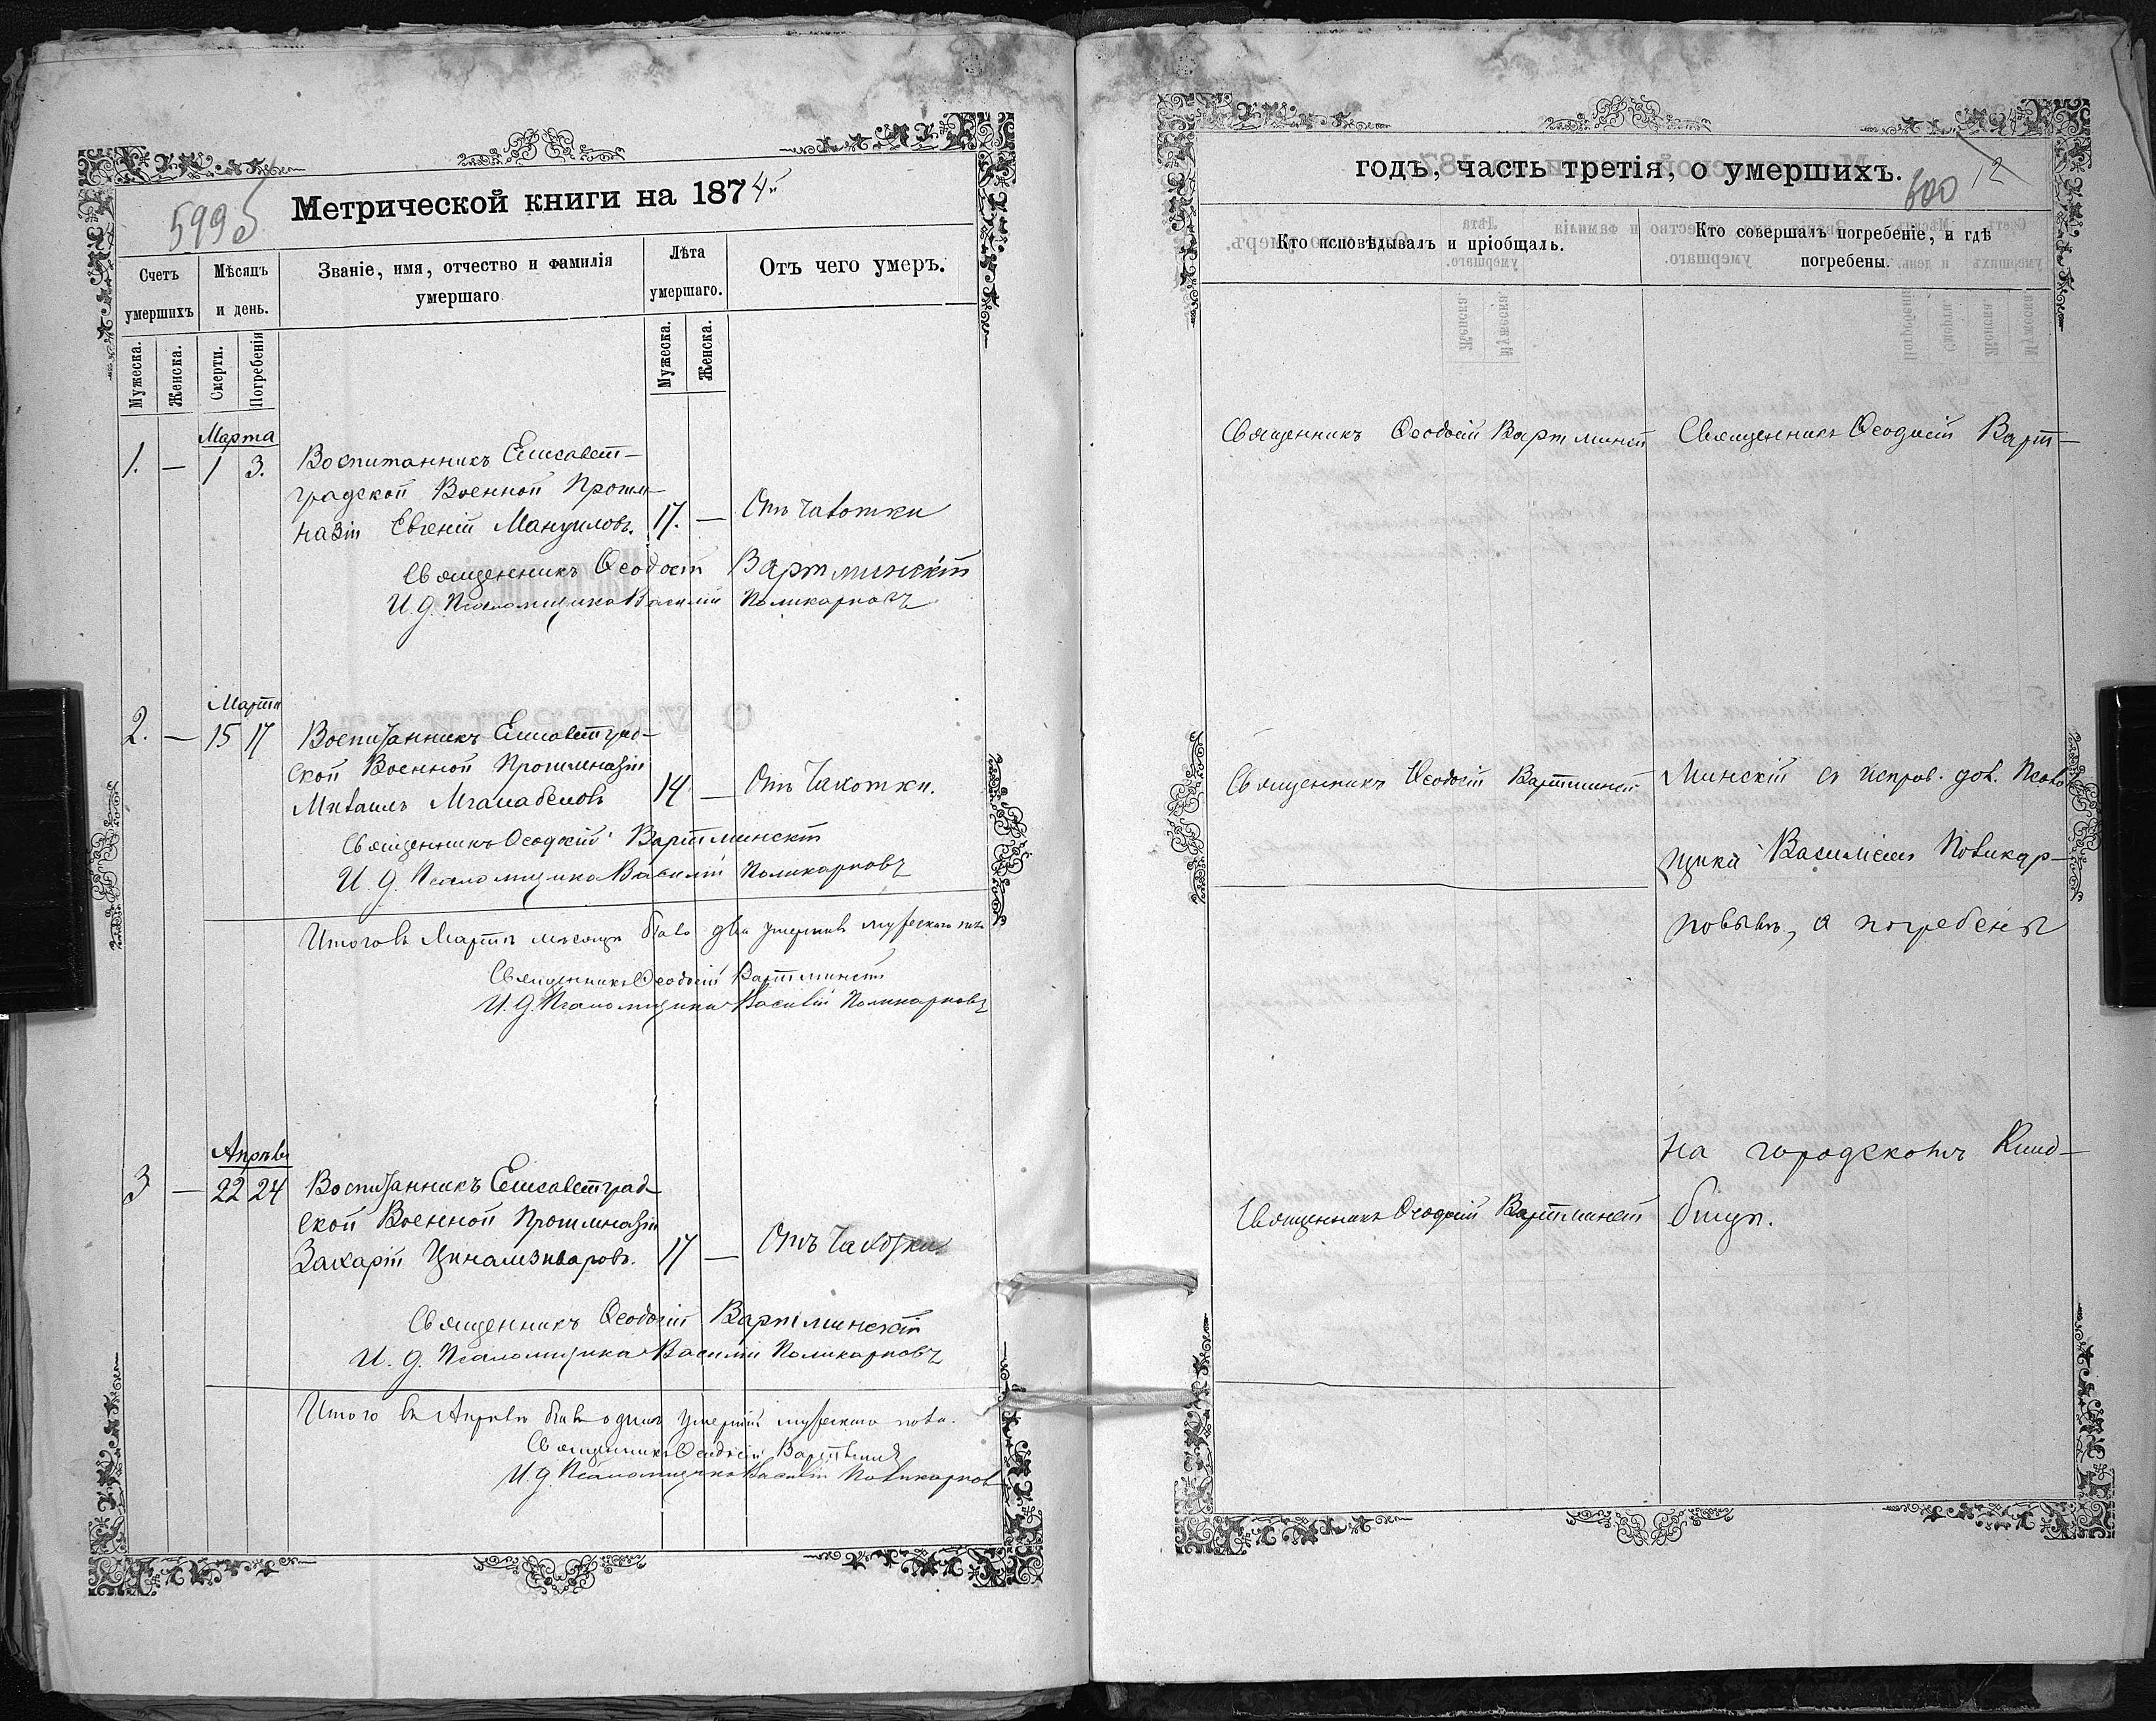 599
Метрической книги на 1874й
Счетъ умершихъ
Мѣсяцъ и день.
Званіе, имя, отчество и фамилія умершаго
Лѣта умершаго.
Отъ чего умеръ.
Мужеска.
Женска.
Смерти.
Погребенія
Мужеска.
Женска.
Марта
1. — 1 3. Воспитанникъ Елисавет-
градской Военной Прогим-
назіи Евгеній Мануиловъ. 17. — Отъ чахотки
Священникъ Ѳеодосій Вартминскій
И. д. Псаломщика Василій Поликарповъ
Марта
2. — 15 17 Воспитанникъ Елисаветград-
ской Военной Прогимназіи
Михаилъ 14 — Отъ Чахотки.
Священникъ Ѳеодосій Вартминскій
И. д. Псаломщика Василій Поликарповъ
Итого въ Мартѣ мѣсяцѣ было два умершихъ мужескаго пола
Священникъ Ѳеодосій Вартминскій
И. д. Псаломщика Василій Поликарповъ
Апрѣль
3 — 22 24 Воспитанникъ Елисаветград-
ской Военной Прогимназіи
Захарій 17 — Отъ Чахотки
Священникъ Ѳеодосій Вартминскій
И. д. Псаломщика Василій Поликарповъ
Итого въ Апрѣлѣ былъ одинъ умершій мужескаго пола.
Священникъ Ѳеодосій
И. д. Псаломщика Василій Поликарповъ
годъ, часть третія, о умершихъ.
600 12
Кто исповѣдывалъ и пріобщалъ.
Кто совершалъ погребеніе, и гдѣ погребены.
Священникъ Ѳеодосій Вартминскій
Священникъ Ѳеодосій Варт-
Священникъ Ѳеодосій Вартминскій
минскій съ исправ. дол. Псалом
щика Василіемъ Поликар-
повымъ, а погребены
на городскомъ Клад-
Священникъ Ѳеодосій Вартминскій
бищѣ.